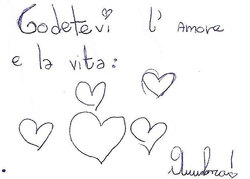 Godetevi l'Amore
e la vita: